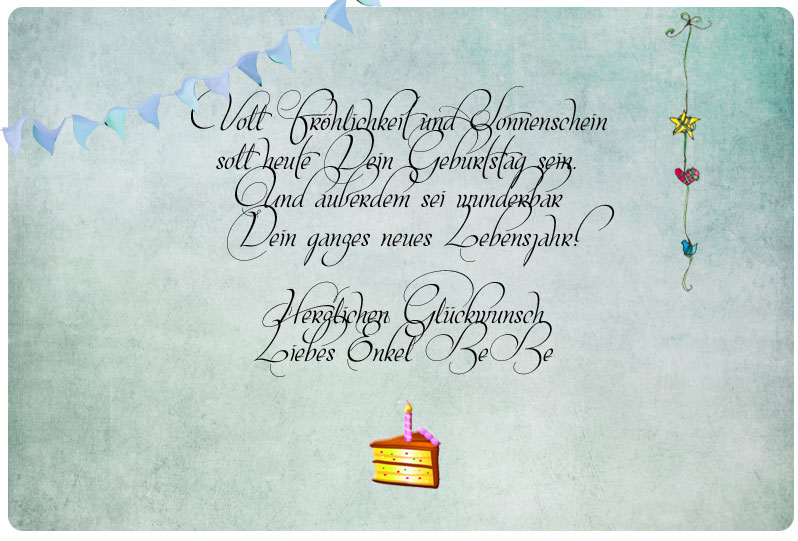 Voll Fröhlichkeit und Sonnenschein
soll heute Dein Geburtstag sein.
Und außerdem sei wunderbar
Dein ganzes neues Lebensjahr!
Herzlichen Glückwunsch
Liebes Enkel BeBe